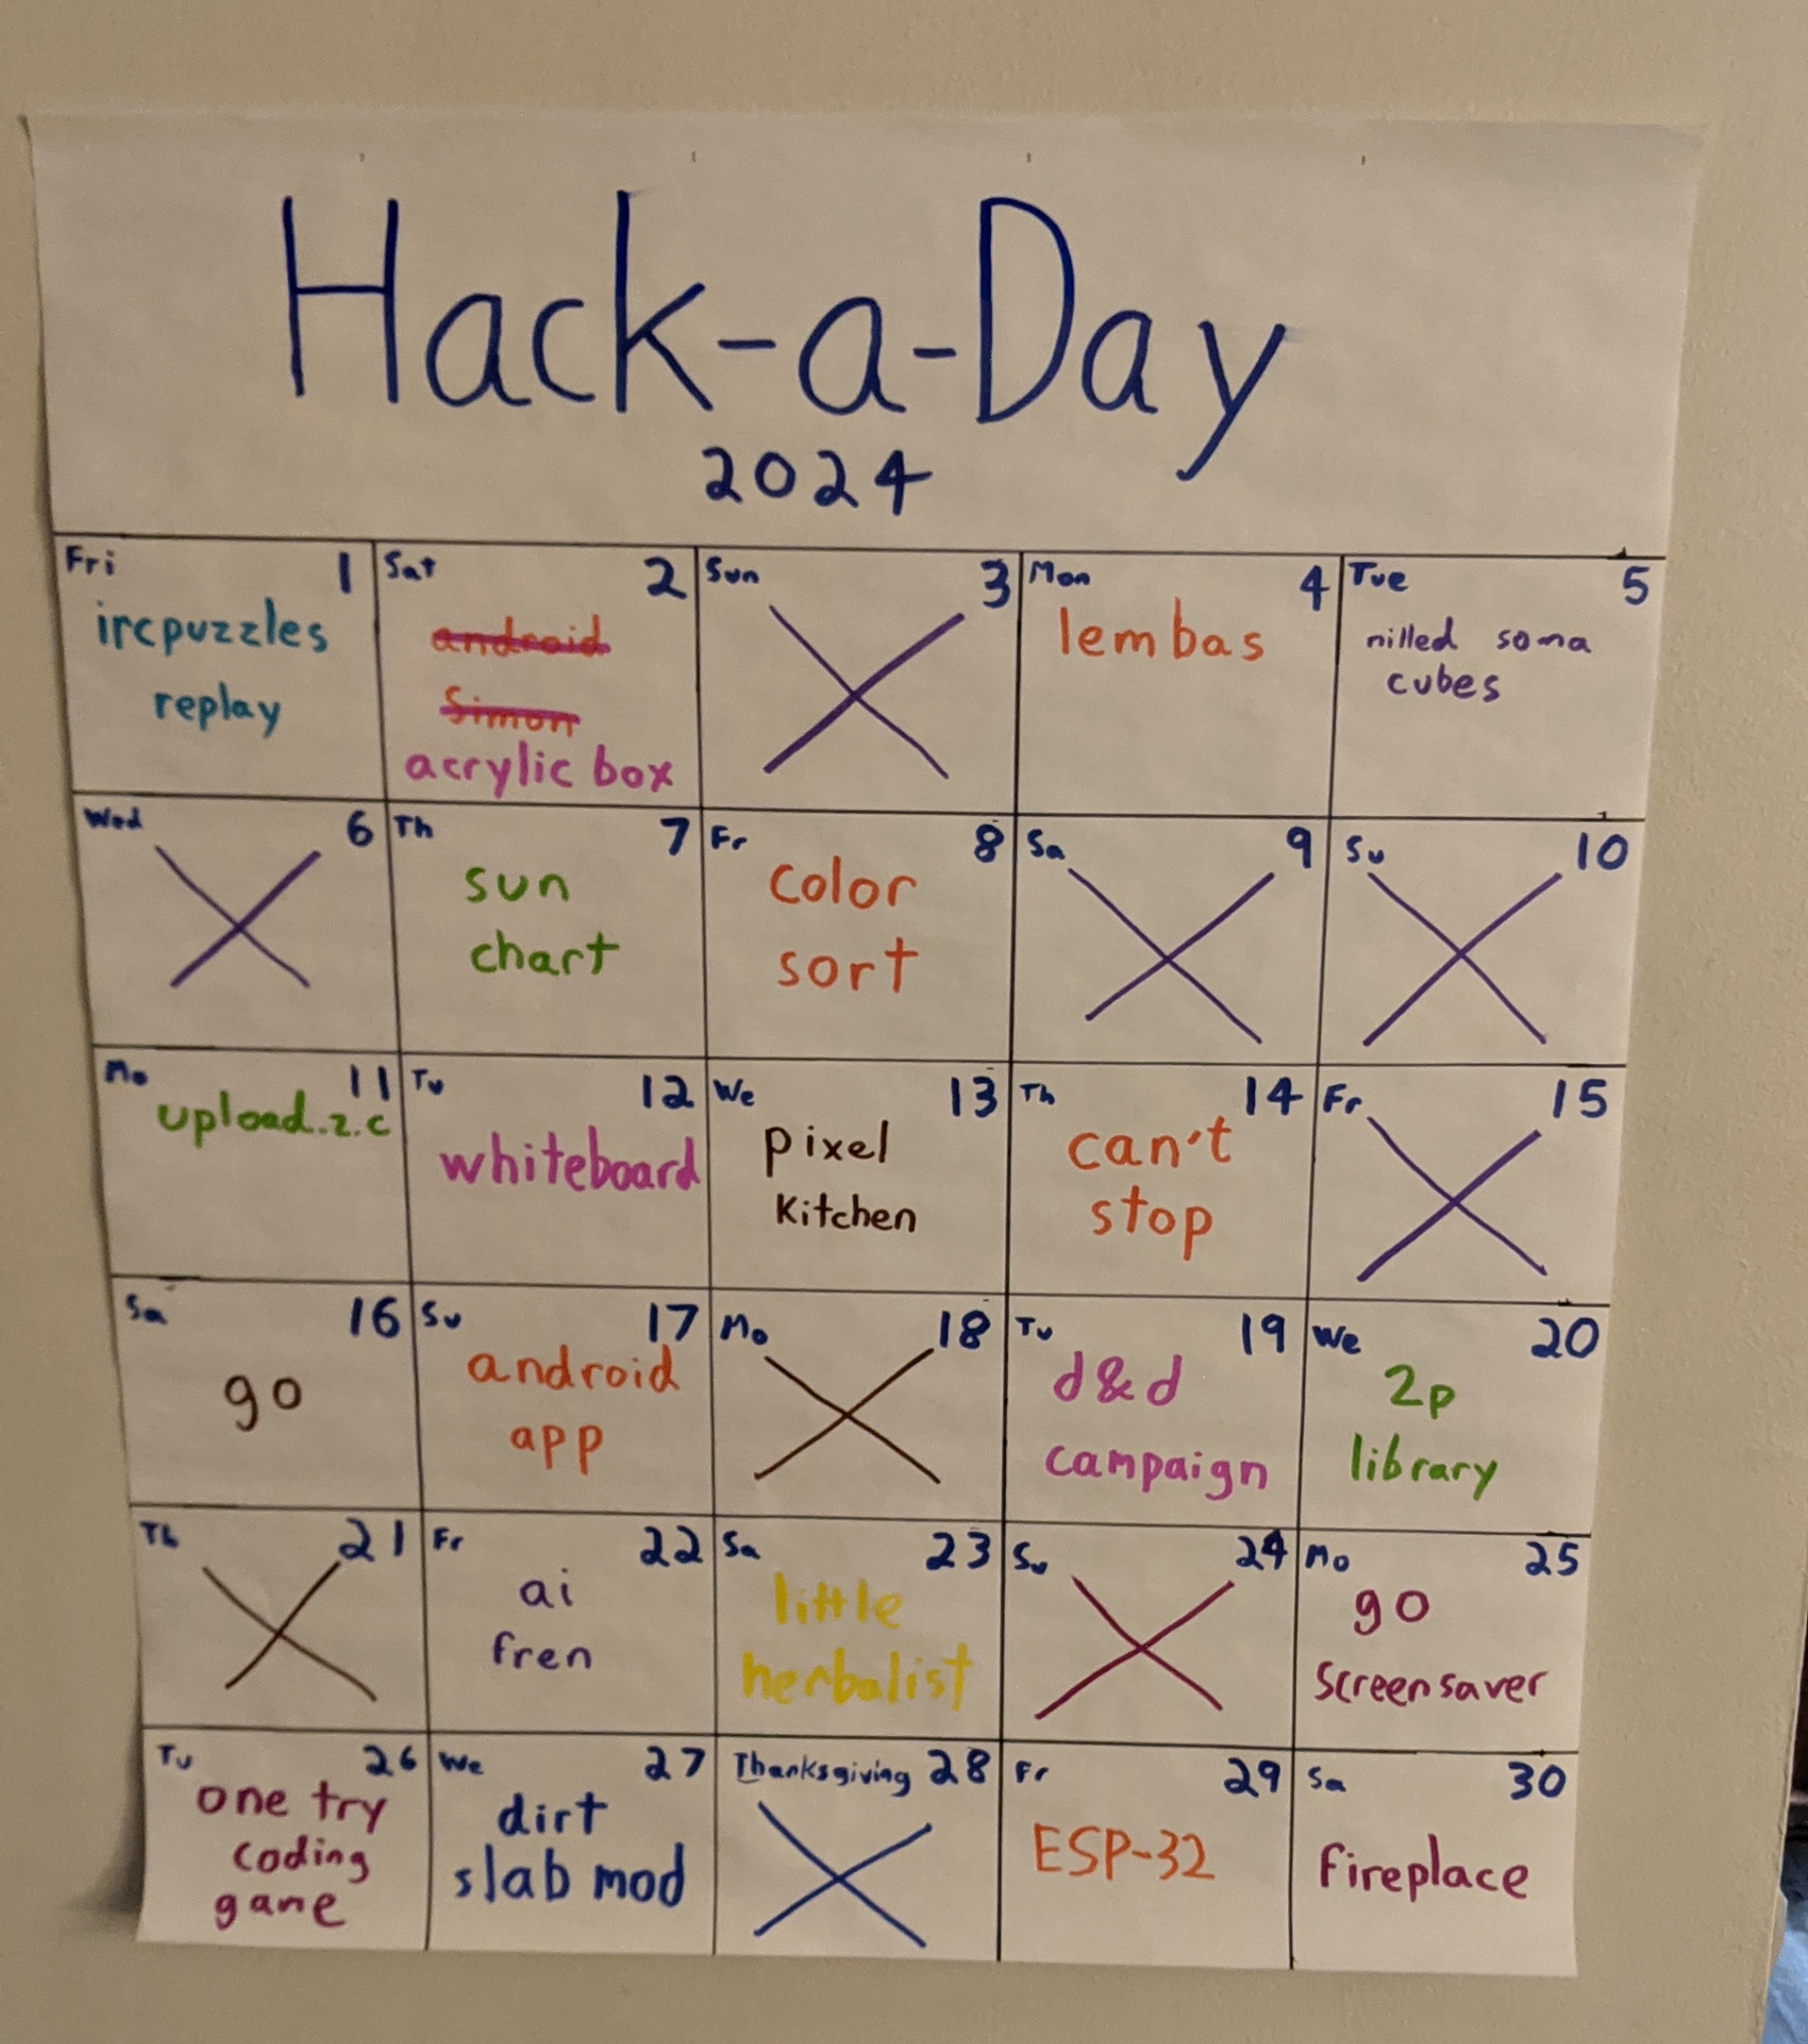 Hack-a-Day
2024
Fri 1
ircpuzzles
replay
Sat 2
android
Simon
acrylic box
Sun 3
Mon 4
lembas
Tue 5
nilled soma
cubes
Wed 6
Th 7
sun
chart
Fr 8
color
sort
Sa 9
Su 10
Mo 11
upload.z.c
Tu 12
whiteboard
We 13
pixel
kitchen
Th 14
can't
stop
Fr 15
Sa 16
go
Su 17
android
app
Mo 18
Tu 19
d&d
campaign
We 20
2p
library
Th 21
Fr 22
ai
fren
Sa 23
little
herbalist
Su 24
Mo 25
go
screensaver
Tu 26
one try
coding
game
We 27
dirt
slab mod
Thanksgiving 28
Fr 29
ESP-32
Sa 30
fireplace